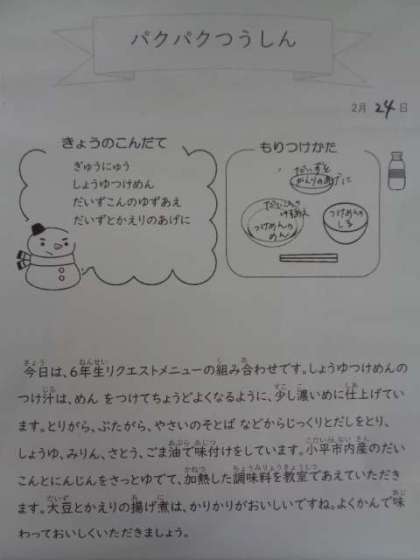 パクパクつうしん
2月 24 日
きょうのこんだて
ぎゅうにゅう
しょうゆつけめん
だいずこんのゆずあえ
だいずとかえりのあげに
もりつけかた
だいずと
かえりのあげに
つけめんの
めん
つけめんの
しる
今日は、6年生リクエストメニューの組み合わせです。しょうゆつけめんの
つけ汁は、めん をつけてちょうどよくなるように、少し濃いめに仕上げてい
ます。とりがら、ぶたがら、やさいのそとば などからじっくりとだしをとり、
しょうゆ、みりん、さとう、ごま油で味付けをしています。小平市内産のだい
こんとにんじんをさっとゆでて、加熱した調味料を教室であえていただき
ます。大豆とかえりの揚げ煮は、かりかりがおいしいですね。よくかんで味
わっておいしくいただきましょう。